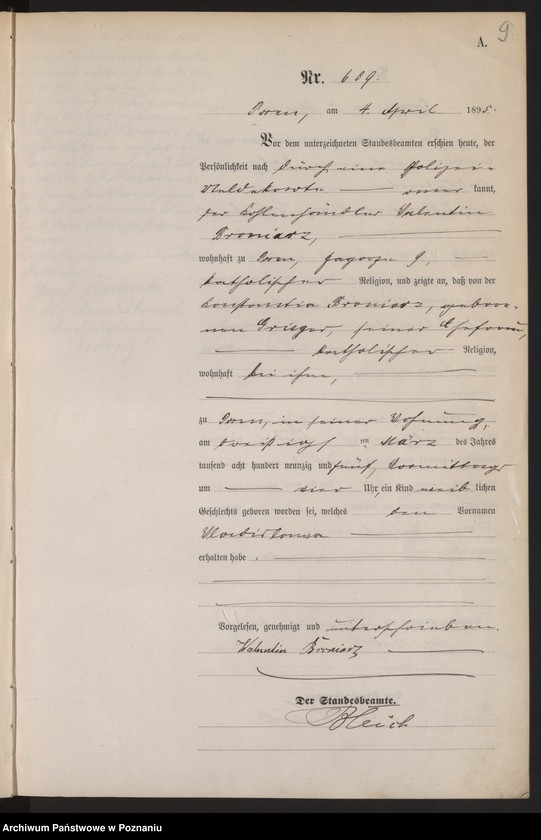 9
A.
Nr. 609.
Posen, am 4. April 1895.
Vor dem unterzeichneten Standesbeamten erschien heute, der
Persönlichkeit nach durch eine Polizei-
Meldekarte — aner kannt,
der Kohlenhändler Valentin
Broniarz, —
wohnhaft zu Posen, 9, —
katholischer Religion, und zeigte an, daß von der
Konstantia Broniarz, gebore-
nen seiner Ehefrau,
— katholischer Religion,
wohnhaft bei ihm, —
zu Posen, in seiner Wohnung,
am dreißigs ten März des Jahres
tausend acht hundert neunzig und fünf, Vormittags
um — vier Uhr, ein Kind weib lichen
Geschlechts geboren worden sei, welches den Vornamen
Wladislawa —
erhalten habe. —
Vorgelesen, genehmigt und unterschrieben.
Walentin Broniarz —
Der Standesbeamte.
Bleich
Archiwum Państwowe w Poznaniu